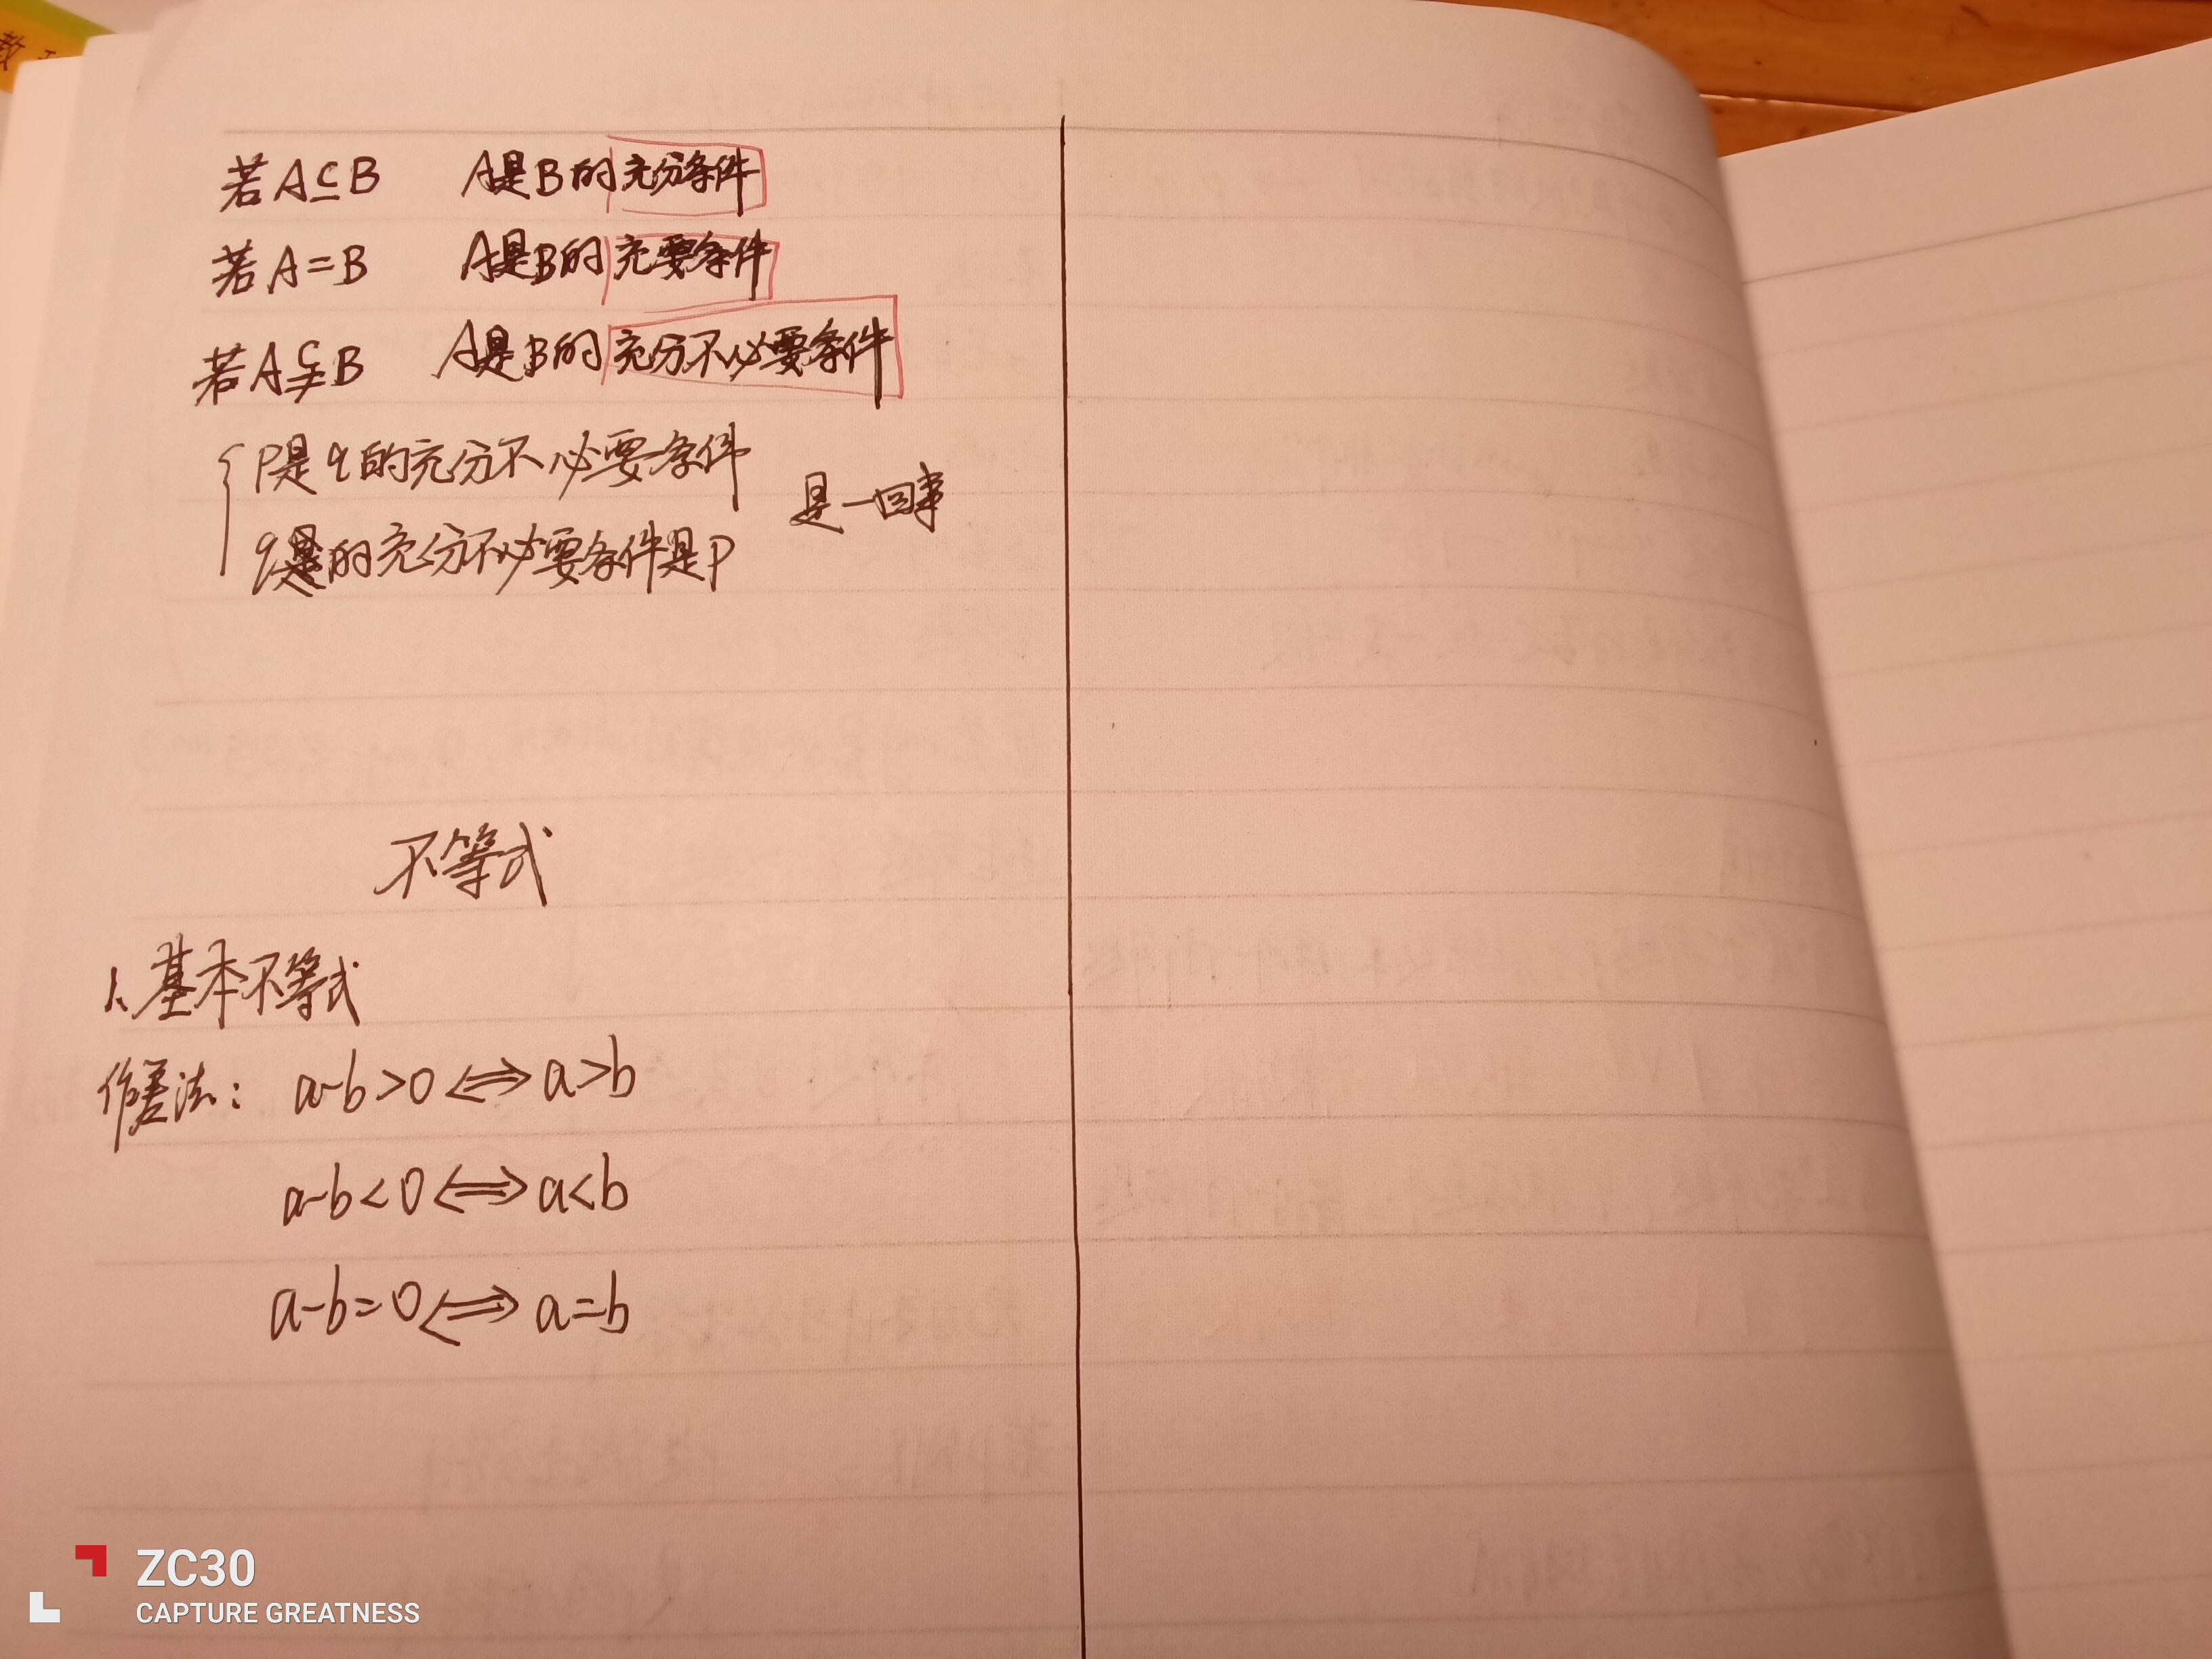 若A⊆B A是B的充分条件
若A=B A是B的充要条件
若A⫋B A是B的充分不必要条件
p是q的充分不必要条件
是一回事
q的充分不必要条件是p
不等式
1、基本不等式
作差法: a-b>0⟺a>b
a-b<0⟺a<b
a-b=0⟺a=b
ZC30
CAPTURE GREATNESS